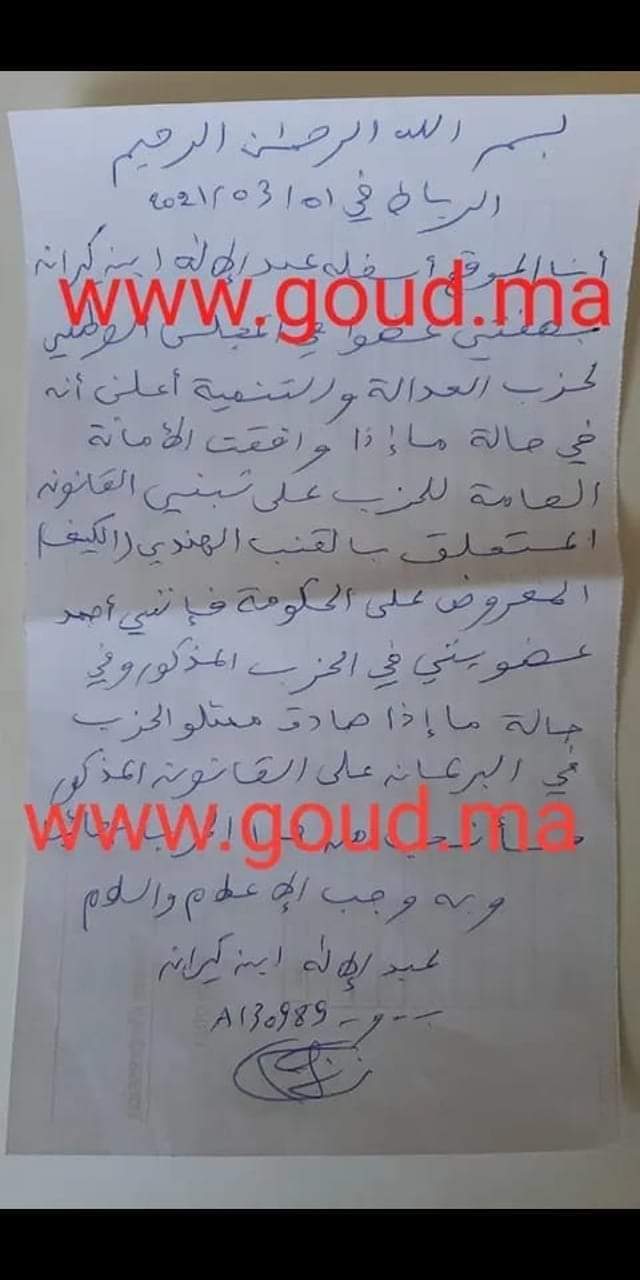 بسم الله الرحمٰن الرحيم
الرباط في 2021/03/01
أنا الموقع أسفله عبد الإلاه ابن كيران
www.goud.ma
بصفتي عضوا في المجلس الوطني
لحزب العدالة والتنمية أعلن أنه
في حالة ما إذا وافقت الأمانة
العامة للحزب على تبني القانون
المتعلق بالقنب الهندي (الكيف)
المعروض على الحكومة فإنني أجمد
عضويتي في الحزب المذكور وفي
حالة ما إذا صادق ممثلو الحزب
في البرلمان على القانون المذكور
www.goud.ma
من هذا الحزب
وبه وجب الإعلام والسلام
عبد الإلاه ابن كيران
ب-و- A130989